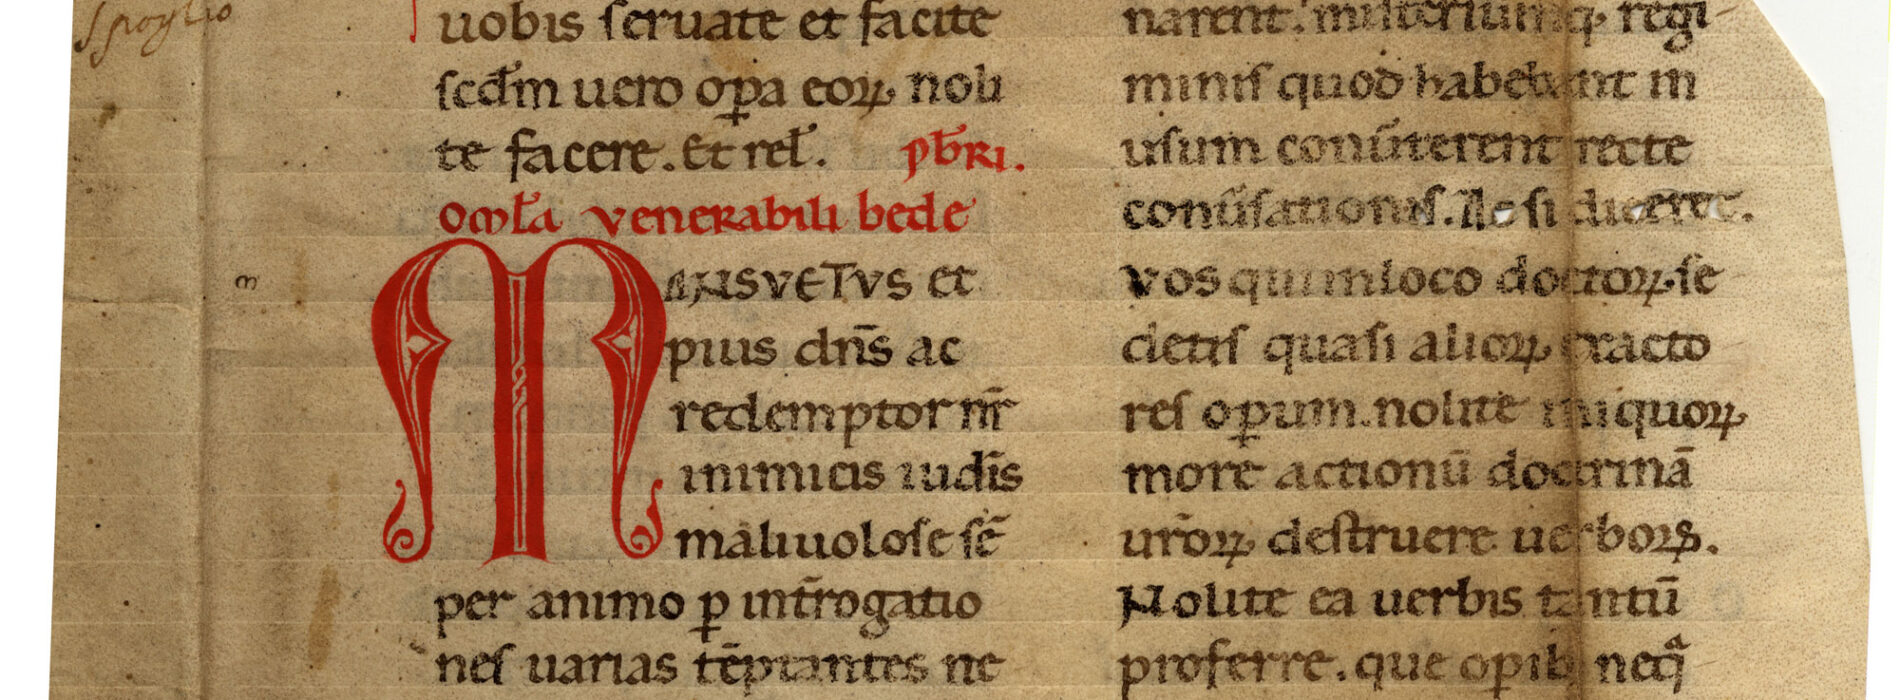 Spoglio
uobis seruate et facite
scd̄m uero op̄a eoꝝ noli
te facere. Et rel̄. p̄br̄i.
om̄l̄a venerabili bede
m
MANSVETVS et
pius dn̄s ac
redemptor nr̄
inimicis iudīs
maliuolose sē
per animo ꝑ int̄rogatio
nes uarias tēptantes ne
narent. misteriumq; regi
minis quod habebant in
usum conūterent recte
conūsationis. Ac si diceret.
vos qui in loco doctoꝝ se
detis quasi alioꝝ exacto
res oꝑum. nolite iniquoꝝ
more actionū doctrinā
ur̄oꝝ destruere uerboꝝ.
Nolite ea uerbis tantū
proferre. que opib neqᵃ